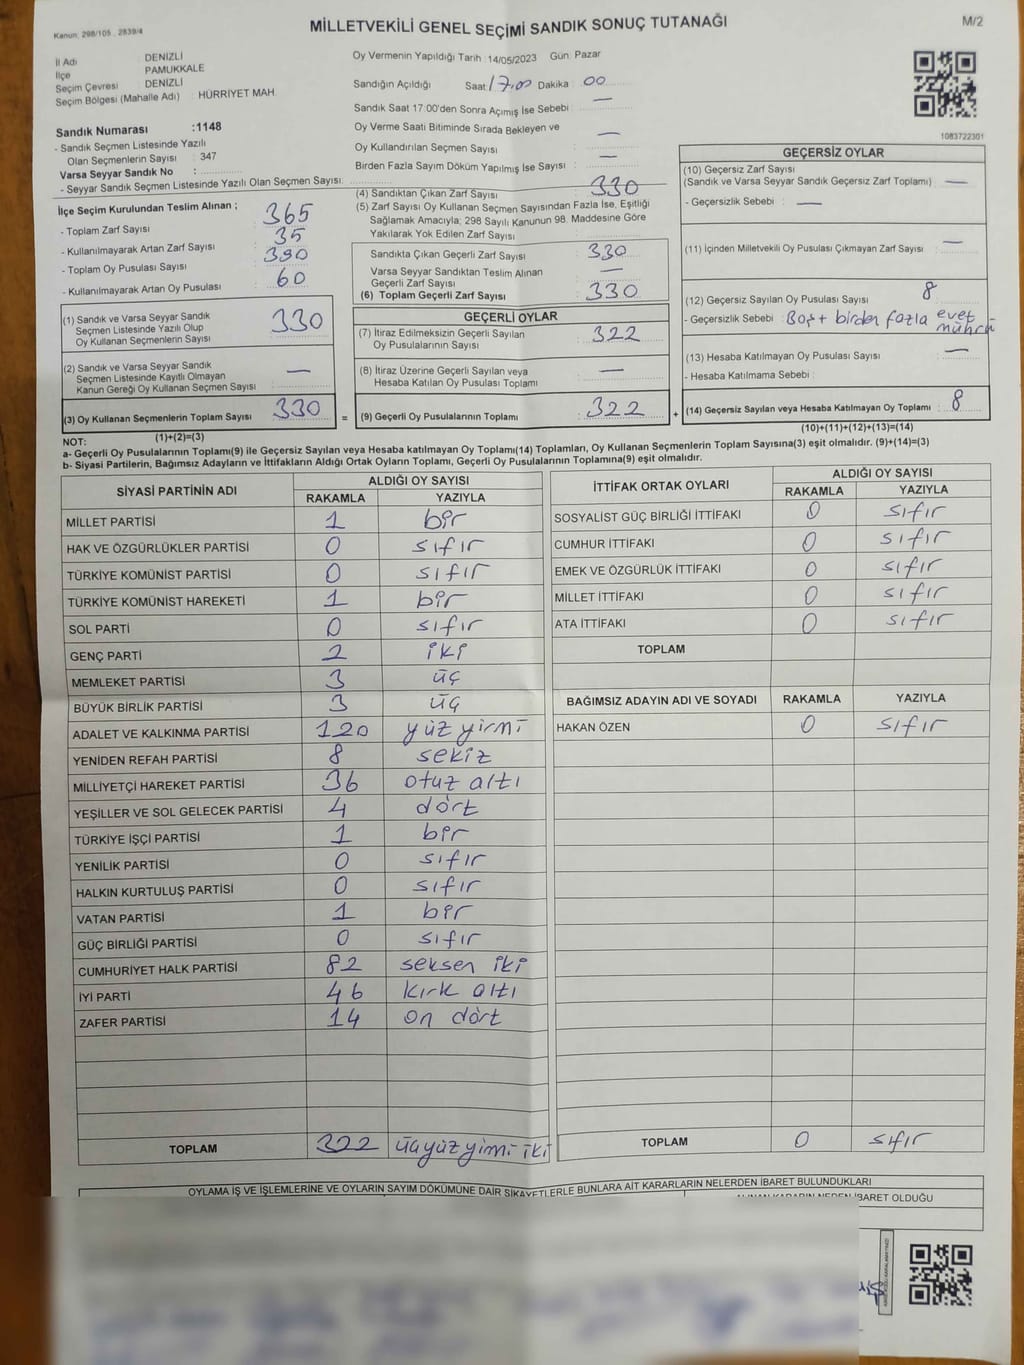 Kanun, 298/105 , 2839/4
MİLLETVEKİLİ GENEL SEÇİMİ SANDIK SONUÇ TUTANAĞI
M/2
İl Adı DENİZLİ
İlçe PAMUKKALE
Seçim Çevresi DENİZLİ
Seçim Bölgesi (Mahalle Adı) : HÜRRİYET MAH.
Sandık Numarası :1148
- Sandık Seçmen Listesinde Yazılı
Olan Seçmenlerin Sayısı : 347
Varsa Seyyar Sandık No :
- Seyyar Sandık Seçmen Listesinde Yazılı Olan Seçmen Sayısı:
Oy Vermenin Yapıldığı Tarih :14/05/2023 Gün: Pazar
Sandığın Açıldığı Saat:17.00 Dakika : 00
Sandık Saat 17:00'den Sonra Açımış İse Sebebi : —
Oy Verme Saati Bitiminde Sırada Bekleyen ve
Oy Kullandırılan Seçmen Sayısı : —
Birden Fazla Sayım Döküm Yapılmış İse Sayısı : —
1083722301
İlçe Seçim Kurulundan Teslim Alınan ;
- Toplam Zarf Sayısı : 365
- Kullanılmayarak Artan Zarf Sayısı : 35
- Toplam Oy Pusulası Sayısı : 390
- Kullanılmayarak Artan Oy Pusulası : 60
(1) Sandık ve Varsa Seyyar Sandık
Seçmen Listesinde Yazılı Olup
Oy Kullanan Seçmenlerin Sayısı : 330
(2) Sandık ve Varsa Seyyar Sandık
Seçmen Listesinde Kayıtlı Olmayan
Kanun Gereği Oy Kullanan Seçmen Sayısı : —
(3) Oy Kullanan Seçmenlerin Toplam Sayısı : 330
(1)+(2)=(3)
(4) Sandıktan Çıkan Zarf Sayısı : 330
(5) Zarf Sayısı Oy Kullanan Seçmen Sayısından Fazla İse, Eşitliği
Sağlamak Amacıyla; 298 Sayılı Kanunun 98. Maddesine Göre
Yakılarak Yok Edilen Zarf Sayısı :
Sandıkta Çıkan Geçerli Zarf Sayısı : 330
Varsa Seyyar Sandıktan Teslim Alınan
Geçerli Zarf Sayısı : —
(6) Toplam Geçerli Zarf Sayısı : 330
GEÇERLİ OYLAR
(7) İtiraz Edilmeksizin Geçerli Sayılan
Oy Pusulalarının Sayısı : 322
(8) İtiraz Üzerine Geçerli Sayılan veya
Hesaba Katılan Oy Pusulası Toplamı : —
= (9) Geçerli Oy Pusulalarının Toplamı : 322
GEÇERSİZ OYLAR
(10) Geçersiz Zarf Sayısı
(Sandık ve Varsa Seyyar Sandık Geçersiz Zarf Toplamı) : —
- Geçersizlik Sebebi : —
(11) İçinden Milletvekili Oy Pusulası Çıkmayan Zarf Sayısı : —
(12) Geçersiz Sayılan Oy Pusulası Sayısı : 8
- Geçersizlik Sebebi : Boş + birden fazla evet
mührü
(13) Hesaba Katılmayan Oy Pusulası Sayısı : —
- Hesaba Katılmama Sebebi :
+ (14) Geçersiz Sayılan veya Hesaba Katılmayan Oy Toplamı : 8
(10)+(11)+(12)+(13)=(14)
NOT:
a- Geçerli Oy Pusulalarının Toplamı(9) ile Geçersiz Sayılan veya Hesaba katılmayan Oy Toplamı(14) Toplamları, Oy Kullanan Seçmenlerin Toplam Sayısına(3) eşit olmalıdır. (9)+(14)=(3)
b- Siyasi Partilerin, Bağımsız Adayların ve İttifakların Aldığı Ortak Oyların Toplamı, Geçerli Oy Pusulalarının Toplamına(9) eşit olmalıdır.
SİYASİ PARTİNİN ADI ALDIĞI OY SAYISI
RAKAMLA YAZIYLA
MİLLET PARTİSİ 1 bir
HAK VE ÖZGÜRLÜKLER PARTİSİ 0 sıfır
TÜRKİYE KOMÜNİST PARTİSİ 0 sıfır
TÜRKİYE KOMÜNİST HAREKETİ 1 bir
SOL PARTİ 0 sıfır
GENÇ PARTİ 2 iki
MEMLEKET PARTİSİ 3 üç
BÜYÜK BİRLİK PARTİSİ 3 üç
ADALET VE KALKINMA PARTİSİ 120 yüz yirmi
YENİDEN REFAH PARTİSİ 8 sekiz
MİLLİYETÇİ HAREKET PARTİSİ 36 otuz altı
YEŞİLLER VE SOL GELECEK PARTİSİ 4 dört
TÜRKİYE İŞÇİ PARTİSİ 1 bir
YENİLİK PARTİSİ 0 sıfır
HALKIN KURTULUŞ PARTİSİ 0 sıfır
VATAN PARTİSİ 1 bir
GÜÇ BİRLİĞİ PARTİSİ 0 sıfır
CUMHURİYET HALK PARTİSİ 82 seksen iki
İYİ PARTİ 46 kırk altı
ZAFER PARTİSİ 14 on dört
TOPLAM 322 üçyüz yirmi iki
İTTİFAK ORTAK OYLARI ALDIĞI OY SAYISI
RAKAMLA YAZIYLA
SOSYALİST GÜÇ BİRLİĞİ İTTİFAKI 0 sıfır
CUMHUR İTTİFAKI 0 sıfır
EMEK VE ÖZGÜRLÜK İTTİFAKI 0 sıfır
MİLLET İTTİFAKI 0 sıfır
ATA İTTİFAKI 0 sıfır
TOPLAM
BAĞIMSIZ ADAYIN ADI VE SOYADI RAKAMLA YAZIYLA
HAKAN ÖZEN 0 sıfır
TOPLAM 0 sıfır
OYLAMA İŞ VE İŞLEMLERİNE VE OYLARIN SAYIM DÖKÜMÜNE DAİR ŞİKAYETLERLE BUNLARA AİT KARARLARIN NELERDEN İBARET BULUNDUKLARI
ALINAN KARARIN NEDEN İBARET OLDUĞU